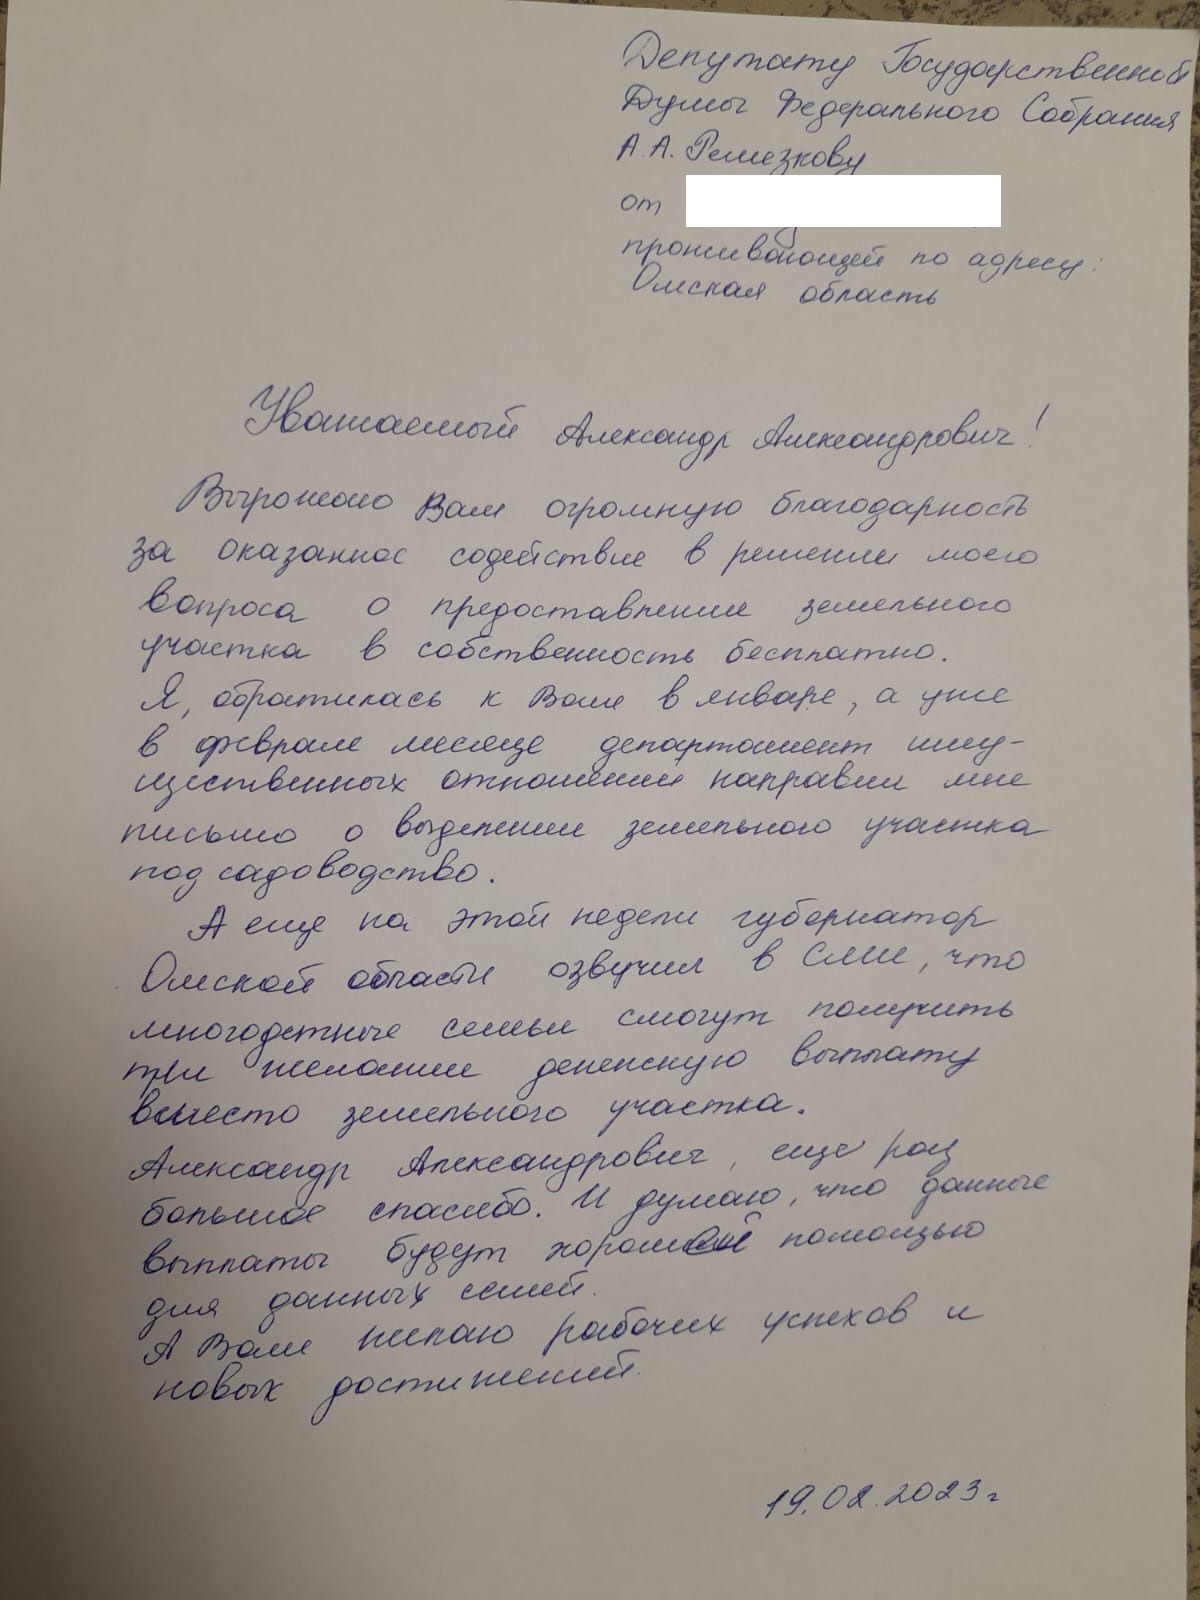 Депутату Государственной
Думы Федерального Собрания
А.А. Ремезкову
от
проживающей по адресу:
Омская область
Уважаемый Александр Александрович!
Выражаю Вам огромную благодарность
за оказанное содействие в решении моего
вопроса о предоставлении земельного
участка в собственность бесплатно.
Я, обратилась к Вам в январе, а уже
в феврале месяце департамент иму-
щественных отношений направил мне
письмо о выделении земельного участка
под садоводство.
А еще на этой недели губернатор
Омской области озвучил в Сми, что
многодетные семьи смогут получить
при желании денежную выплату
вместо земельного участка.
Александр Александрович, еще раз
большое спасибо. И думаю, что данные
выплаты будут хорошей помощью
для данных семей.
А Вам желаю рабочих успехов и
новых достижений.
19.02.2023г